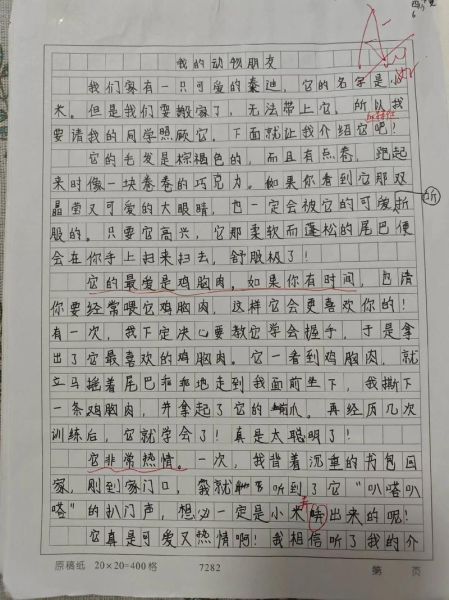 A-
我的动物朋友
我们家有一只可爱的泰迪，它的名字是小
米。但是我们要搬家了，无法带上它，所以我
要请我的同学照顾它。下面就让我介绍它吧！
它的毛发是棕褐色的，而且有点卷，跑起
来时像一块卷卷的巧克力。如果你看到它那双
晶莹又可爱的大眼睛，也一定会被它的可爱折
服的。只要它高兴，它那柔软而蓬松的尾巴便
会在你手上扫来扫去，舒服极了！
它的最爱是鸡胸肉。如果你有时间，也请
你要经常喂它鸡胸肉，这样它会更喜欢你的！
有一次，我下定决心要教它学会握手，于是拿
出了它最喜欢的鸡胸肉。它一看到鸡胸肉，就
立马摇着尾巴乖乖地走到我面前坐下，我撕下
一条鸡胸肉，并拿起了它的爪。再经历几次
训练后，它就学会了！真是太聪明了！
它非常热情。一次，我背着沉重的书包回
家，刚到家门口，我就听到了它“叭嗒叭
嗒”的扒门声，想必一定是小米出来的呢！
它真是可爱又热情啊！我相信听了我的介
原稿纸 20×20=400格 7282 第 页